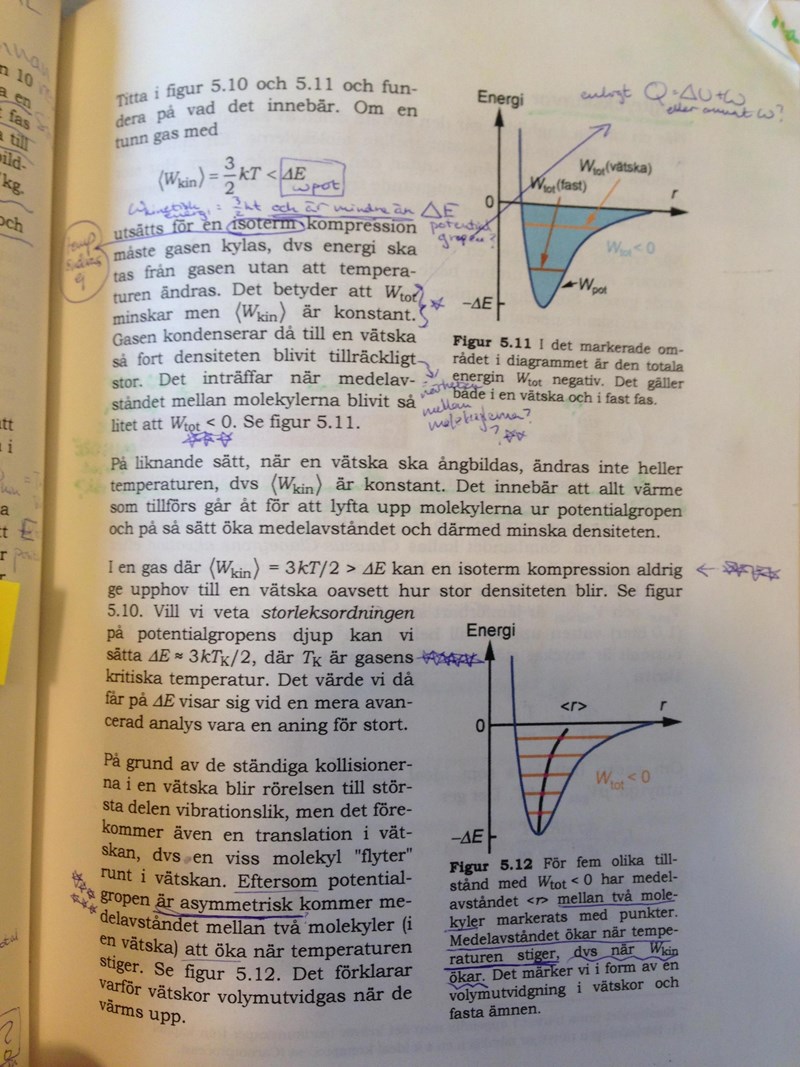 Titta i figur 5.10 och 5.11 och fun-
dera på vad det innebär. Om en
tunn gas med
⟨Wkin⟩ = 3/2 kT < ΔE
wpot
och är mindre än ΔE
utsätts för en isoterm kompression
måste gasen kylas, dvs energi ska
tas från gasen utan att tempera-
turen ändras. Det betyder att Wtot
minskar men ⟨Wkin⟩ är konstant.
Gasen kondenserar då till en vätska
så fort densiteten blivit tillräckligt
stor. Det inträffar när medelav-
ståndet mellan molekylerna blivit så
litet att Wtot < 0. Se figur 5.11.
enligt Q = ΔU + W
eller annat W?
Energi
Wtot(vätska)
Wtot(fast)
r
0
Wtot < 0
Wpot
−ΔE
potential
gropen?
Figur 5.11 I det markerade om-
rådet i diagrammet är den totala
energin Wtot negativ. Det gäller
både i en vätska och i fast fas.
mellan
molekylerna?
På liknande sätt, när en vätska ska ångbildas, ändras inte heller
temperaturen, dvs ⟨Wkin⟩ är konstant. Det innebär att allt värme
som tillförs går åt för att lyfta upp molekylerna ur potentialgropen
och på så sätt öka medelavståndet och därmed minska densiteten.
I en gas där ⟨Wkin⟩ = 3kT/2 > ΔE kan en isoterm kompression aldrig
ge upphov till en vätska oavsett hur stor densiteten blir. Se figur
5.10. Vill vi veta storleksordningen
på potentialgropens djup kan vi
sätta ΔE ≈ 3kTK/2, där TK är gasens
kritiska temperatur. Det värde vi då
får på ΔE visar sig vid en mera avan-
cerad analys vara en aning för stort.
På grund av de ständiga kollisioner-
na i en vätska blir rörelsen till stör-
sta delen vibrationslik, men det före-
kommer även en translation i vät-
skan, dvs en viss molekyl "flyter"
runt i vätskan. Eftersom potential-
gropen är asymmetrisk kommer me-
delavståndet mellan två molekyler (i
en vätska) att öka när temperaturen
stiger. Se figur 5.12. Det förklarar
varför vätskor volymutvidgas när de
värms upp.
Energi
<r>
r
0
Wtot < 0
−ΔE
Figur 5.12 För fem olika till-
stånd med Wtot < 0 har medel-
avståndet <r> mellan två mole-
kyler markerats med punkter.
Medelavståndet ökar när tempe-
raturen stiger, dvs när Wkin
ökar. Det märker vi i form av en
volymutvidgning i vätskor och
fasta ämnen.